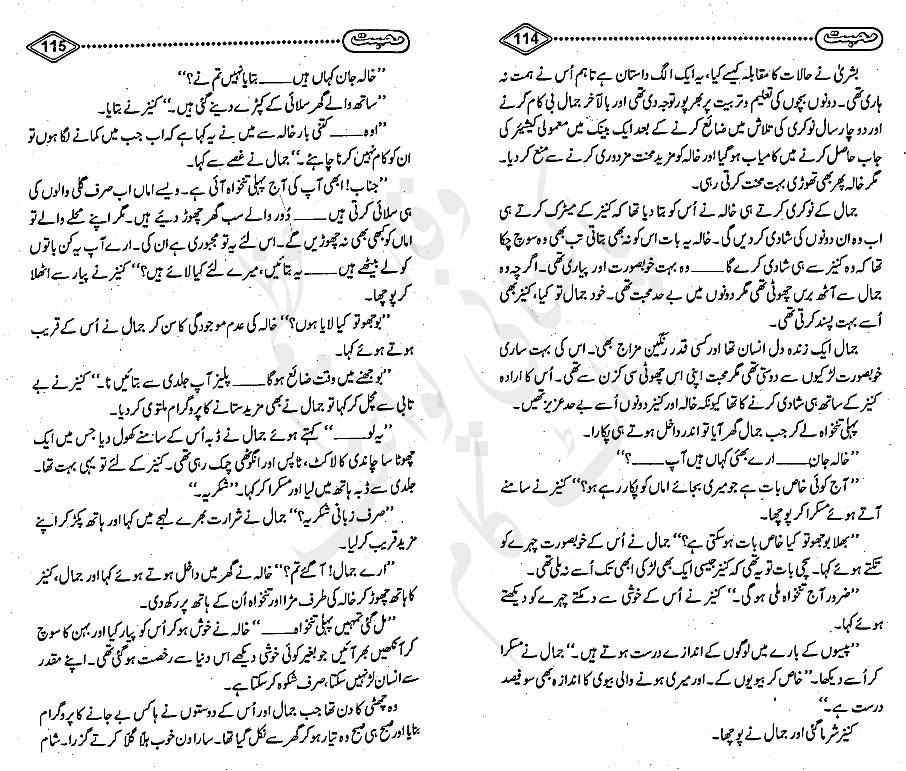 محبت 114
بشریٰ نے حالات کا مقابلہ کیسے کیا، یہ ایک الگ داستان ہے تاہم اُس نے ہمت نہ
ہاری تھی۔ دونوں بچوں کی تعلیم و تربیت پر بھرپور توجہ دی تھی اور بالآخر جمال بی کام کرنے
اور دو چار سال نوکری کی تلاش میں ضائع کرنے کے بعد ایک بینک میں معمولی کیشیئر کی
جاب حاصل کرنے میں کامیاب ہو گیا اور خالہ کو مزید محنت مزدوری کرنے سے منع کر دیا۔
مگر خالہ پھر بھی تھوڑی بہت محنت کرتی رہی۔
جمال کے نوکری کرتے ہی خالہ نے اُس کو بتا دیا تھا کہ کنیز کے میٹرک کرتے ہی
اب وہ ان دونوں کی شادی کر دیں گی۔ خالہ یہ بات اس کو نہ بھی بتاتی تب بھی وہ سوچ چکا
تھا کہ وہ کنیز سے ہی شادی کرے گا ____ وہ بہت خوبصورت اور پیاری تھی۔ اگرچہ وہ
جمال سے آٹھ برس چھوٹی تھی مگر دونوں میں بے حد محبت تھی۔ خود جمال تو کیا، کنیز بھی
اُسے بہت پسند کرتی تھی۔
جمال ایک زندہ دل انسان تھا اور کسی قدر رنگین مزاج بھی۔ اس کی بہت ساری
خوبصورت لڑکیوں سے دوستی تھی مگر محبت اپنی اس چھوٹی سی کزن سے تھی۔ اُس کا ارادہ
کنیز کے ساتھ ہی شادی کرنے کا تھا کیونکہ خالہ اور کنیز دونوں اُسے بے حد عزیز تھیں۔
پہلی تنخواہ لے کر جب جمال گھر آیا تو اندر داخل ہوتے ہی پکارا۔
’’خالہ جان ____ ارے بھئی کہاں ہیں آپ ____؟‘‘
’’آج کوئی خاص بات ہے جو میری بجائے اماں کو پکار رہے ہو؟‘‘ کنیز نے سامنے
آتے ہوئے مسکرا کر پوچھا۔
’’بھلا بوجھو تو کیا خاص بات ہو سکتی ہے؟‘‘ جمال نے اُس کے خوبصورت چہرے کو
تکتے ہوئے کہا۔ سچی بات تو یہ تھی کہ کنیز جیسی ایک بھی لڑکی ابھی تک اُسے نہ ملی تھی۔
’’ضرور آج تنخواہ ملی ہو گی۔‘‘ کنیز نے اُس کے خوشی سے دمکتے چہرے کو دیکھتے
ہوئے کہا۔
’’پیسوں کے بارے میں لوگوں کے اندازے درست ہوتے ہیں۔‘‘ جمال نے مسکرا
کر اُسے دیکھا۔ ’’خاص کر بیویوں کے۔ اور میری ہونے والی بیوی کا اندازہ بھی سو فیصد
درست ہے۔‘‘
کنیز شرما گئی اور جمال نے پوچھا۔
محبت 115
’’خالہ جان کہاں ہیں ____ بتایا نہیں تم نے؟‘‘
’’ساتھ والے گھر سلائی کے کپڑے دینے گئی ہیں۔‘‘ کنیز نے بتایا۔
’’اوہ ____ کتنی بار خالہ سے میں نے یہ کہا ہے کہ اب جب میں کمانے لگا ہوں تو
ان کو کام نہیں کرنا چاہئے۔‘‘ جمال نے غصے سے کہا۔
’’جناب! ابھی آپ کی آج پہلی تنخواہ آئی ہے۔ ویسے اماں اب صرف گلی والوں کی
ہی سلائی کرتی ہیں ____ دُور والے سب گھر چھوڑ دیئے ہیں۔ مگر اپنے محلے والے تو
اماں کو کبھی بھی نہ چھوڑیں گے۔ اس لئے یہ تو مجبوری ہے ان کی۔ ارے آپ یہ کن باتوں
کو لے بیٹھے ہیں ____ یہ بتائیں، میرے لئے کیا لائے ہیں؟‘‘ کنیز نے پیار سے اٹھلا
کر پوچھا۔
’’بوجھو تو کیا لایا ہوں؟‘‘ خالہ کی عدم موجودگی کا سن کر جمال نے اُس کے قریب
ہوتے ہوئے کہا۔
’’بوجھنے میں وقت ضائع ہو گا ____ پلیز آپ جلدی سے بتائیں نا۔‘‘ کنیز نے بے
تابی سے مچل کر کہا تو جمال نے بھی مزید ستانے کا پروگرام ملتوی کر دیا۔
’’یہ لو ____‘‘ کہتے ہوئے جمال نے ڈبہ اُس کے سامنے کھول دیا جس میں ایک
چھوٹا سا چاندی کا لاکٹ، ٹاپس اور انگوٹھی چمک رہی تھی۔ کنیز کے لئے تو یہی بہت تھا۔
جلدی سے ڈبہ ہاتھ میں لیا اور مسکرا کر کہا۔ ’’شکریہ۔‘‘
’’صرف زبانی شکریہ؟‘‘ جمال نے شرارت بھرے لہجے میں کہا اور ہاتھ پکڑ کر اپنے
مزید قریب کر لیا۔
’’ارے جمال! آ گئے تم؟‘‘ خالہ نے گھر میں داخل ہوتے ہوئے کہا اور جمال، کنیز
کا ہاتھ چھوڑ کر خالہ کی طرف مڑا اور تنخواہ اُن کے ہاتھ پر رکھ دی۔
’’مل گئی تمہیں پہلی تنخواہ ____‘‘ خالہ نے خوش ہو کر اُس کو پیار کیا اور بہن کا سوچ
کر آنکھیں بھر آئیں جو بغیر کوئی خوشی دیکھے اس دنیا سے رخصت ہو گئی تھی۔ اپنے مقدر
سے انسان لڑ نہیں سکتا، صرف شکوہ کر سکتا ہے۔
وہ چھٹی کا دن تھا جب جمال اور اُس کے دوستوں نے ہاکس بے جانے کا پروگرام
بنایا اور صبح ہی صبح وہ تیار ہو کر گھر سے نکل گیا تھا۔ سارا دن خوب ہلا گلا کرتے گزرا۔ شام